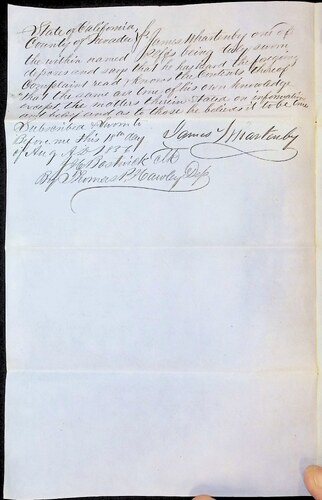 State of California
County of Nevada } ss James Whartenby one of
the within named Plffs being duly sworn
deposes and says that he has heard the foregoing
Complaint read & knows the Contents thereof
that the same are true of his own knowledge
except the matters therein stated on information
and belief and as to those he believes it to be true
Subscribed & sworn to
Before me this 14th day
of Aug AD 1861
James Whartenby
Bostwick Clk
By Thomas P Hawley Dep